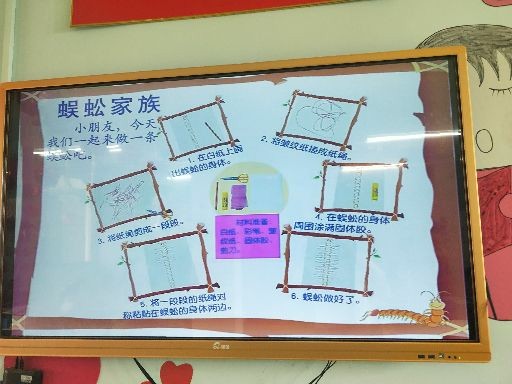 蜈蚣家族
小朋友，今天
我们一起来做一条
蜈蚣吧。
1. 在白纸上画
出蜈蚣的身体。
2. 将皱纹纸搓成纸绳。
3. 将纸绳剪成一段段。
4. 在蜈蚣的身体
周围涂满固体胶。
材料准备
白纸、彩笔、皱
纹纸、固体胶、
剪刀。
5. 将一段段的纸绳对
称粘贴在蜈蚣的身体两边。
6. 蜈蚣做好了。